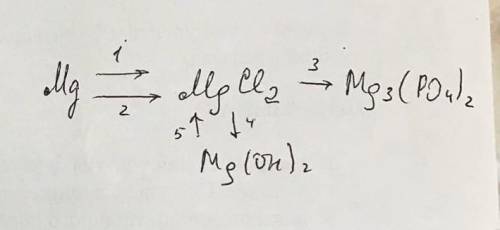 1 3
Mg → MgCl2 → Mg3(PO4)2
2
5 ↑ ↓ 4
Mg(OH)2